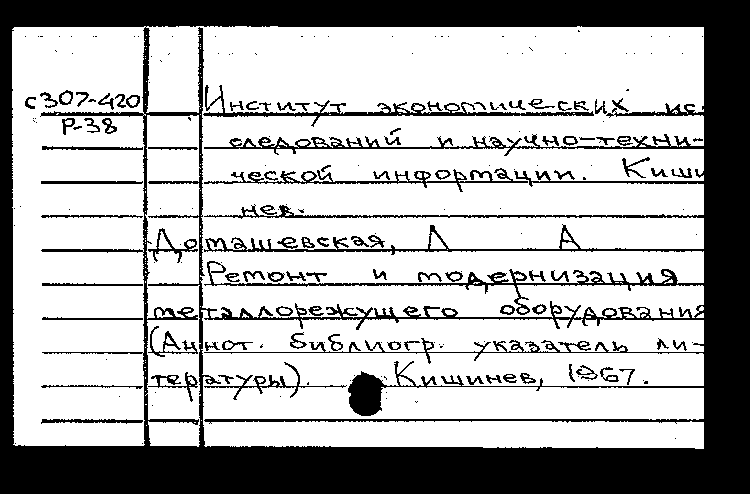 с307-420
Р-38
Институт экономических ис-
следований и научно-техни-
ческой информации. Киши
нев.
Доташевская, Л А
Ремонт и модернизация
металлорежущего оборудования
(Аннот. библиогр. указатель ли-
тературы). Кишинев, 1967.